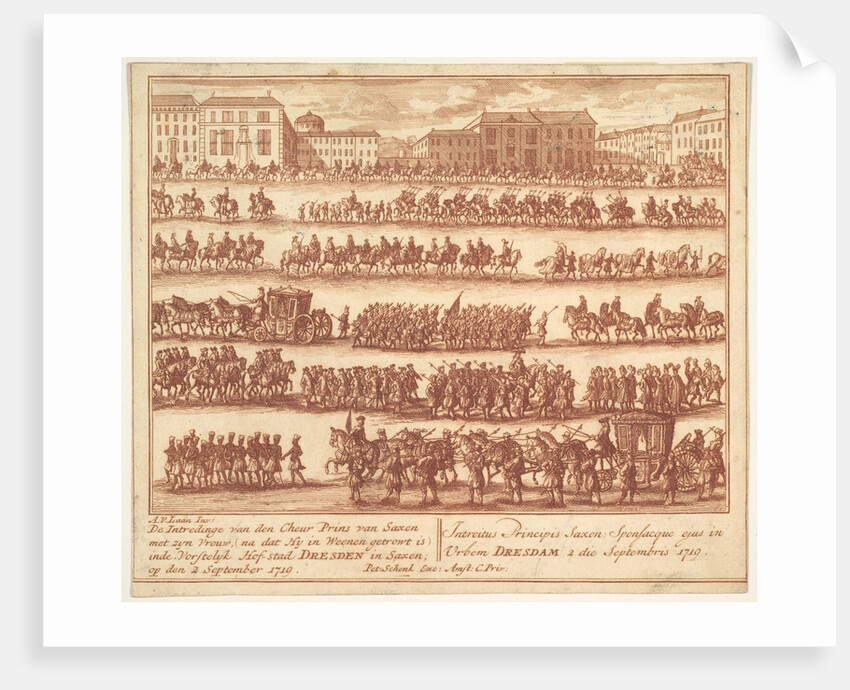 A.V. Laan Inv:
De Intredinge van den Cheur Prins van Saxen
met zyn Vrouw, (na dat Hy in Weenen getrowt is)
inde Vorstelyk Hof-stad DRESDEN in Saxen;
op den 2 September 1719.
Introitus Principis Saxon: Sponsacque ejus in
Urbem DRESDAM 2 die Septembris 1719.
Pet: Schenk Exc: Amst: C. Priv: